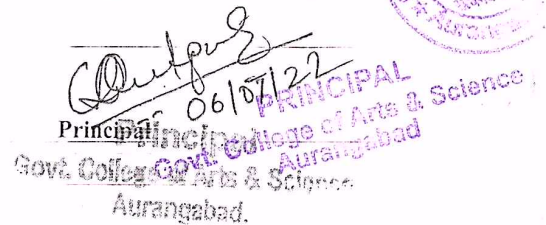 06/07/22
PRINCIPAL
Govt. College of Arts & Science
Aurangabad
Principal
Principal
Govt. College of Arts & Science
Aurangabad.